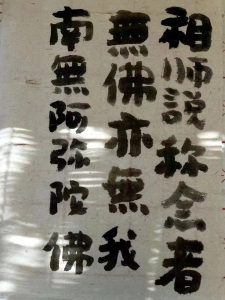 祖师説称念者
無佛亦無我
南無阿弥陀佛